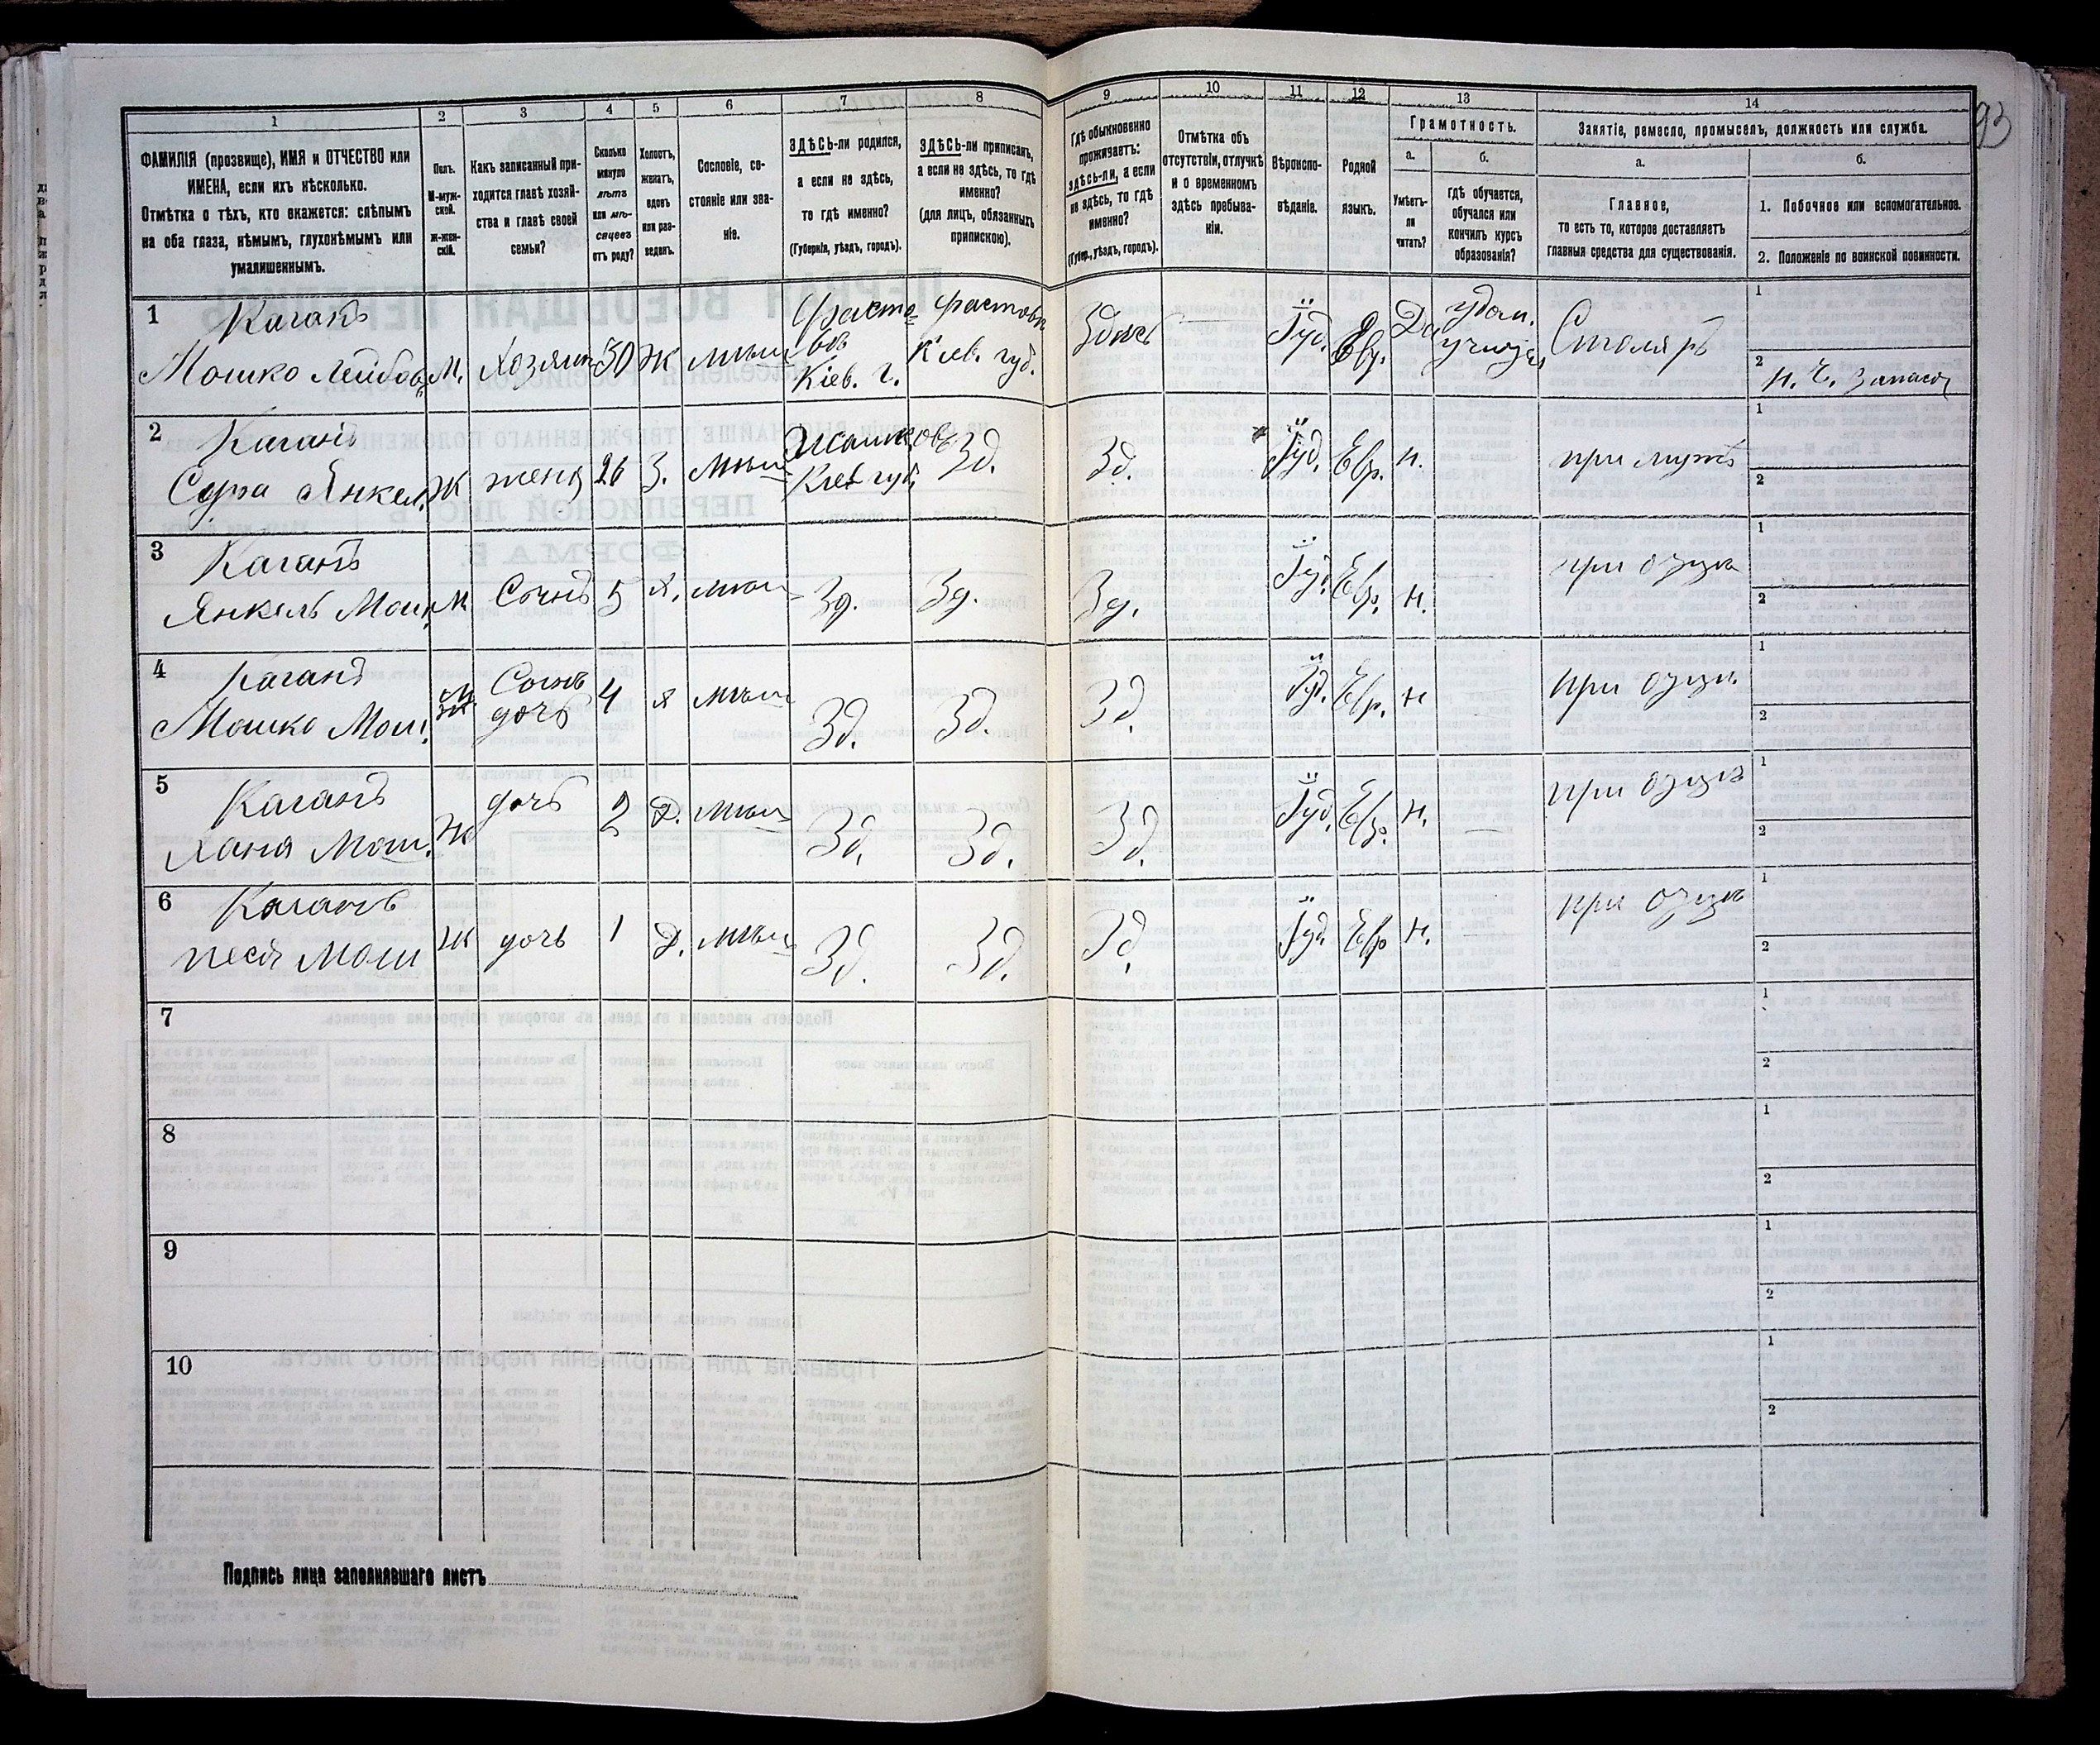 93
1 2 3 4 5 6 7 8 9 10 11 12 13 14
ФАМИЛІЯ (прозвище), ИМЯ и ОТЧЕСТВО или
ИМЕНА, если ихъ нѣсколько.
Отмѣтка о тѣхъ, кто окажется: слѣпымъ
на оба глаза, нѣмымъ, глухонѣмымъ или
умалишеннымъ.
Полъ.
М-муж-
ской.
Ж-жен-
скій.
Какъ записанный при-
ходится главѣ хозяй-
ства и главѣ своей
семьи?
Сколько
минуло
лѣтъ
или мѣ-
сяцевъ
отъ роду?
Холостъ,
женатъ,
вдовъ
или раз-
веденъ.
Сословіе, со-
стояніе или зва-
ніе.
ЗДѢСЬ-ли родился,
а если не здѣсь,
то гдѣ именно?
(Губернія, уѣздъ, городъ).
ЗДѢСЬ-ли приписанъ,
а если не здѣсь, то гдѣ
именно?
(для лицъ, обязанныхъ
припискою).
Гдѣ обыкновенно
проживаетъ:
здѣсь-ли, а если
не здѣсь, то гдѣ
именно?
(Губер., уѣздъ, городъ).
Отмѣтка объ
отсутствіи, отлучкѣ
и о временномъ
здѣсь пребыва-
ніи.
Вѣроиспо-
вѣданіе.
Родной
языкъ.
Грамотность.
а.
Умѣетъ-
ли
читать?
б.
Гдѣ обучается,
обучался или
кончилъ курсъ
образованія?
Занятіе, ремесло, промыселъ, должность или служба.
а.
Главное,
то есть то, которое доставляетъ
главныя средства для существованія.
б.
1. Побочное или вспомогательное.
2. Положеніе по воинской повинности.
1 Каганъ
Мошко Лейбов. М. Хозяин 30 Ж мѣщ
Фасто
вов
Кіев. г.
Фастов
Кіев. губ.
Здѣсь — Іуд. Евр. Да
Столяръ
1
2
2 Каганъ
Сура Янкел. Ж жена 26 З. Мѣщ
Жашков
Кіев губ.
Зд. Зд. Іуд. Евр. Н. при мужѣ
1
2
3 Каганъ
Янкель Мош. М Сынъ 5 Х. мѣщ Зд. Зд. Зд. Іуд. Евр. Н. — при отцѣ
1
2
4 Каганъ
Мошко Мош. М
Сынъ
дочь
4 Х мѣщ Зд. Зд. Зд. Іуд. Евр. Н при отцѣ
1
2
5 Каганъ
Хана Мош. Ж дочь 2 Д. мѣщ Зд. Зд. Зд. Іуд. Евр. Н. — при отцѣ
1
2
6 Каганъ
Песя Мош Ж дочь 1 Д. мѣщ Зд. Зд. Зд. Іуд. Евр Н. — при отцѣ
1
2
7
1
2
8
1
2
9
1
2
10
1
2
Подпись лица заполнявшаго листъ